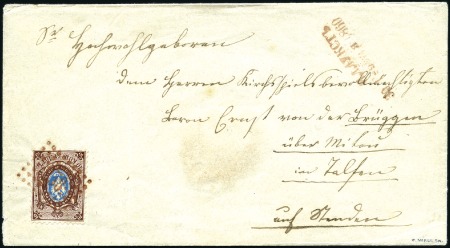 Sr Hochwohlgeboren
dem Herren Kirchspielsbevollmächtigten
Baron Ernst von der Brüggen
über Mitau
in Talsen
auf Stenden